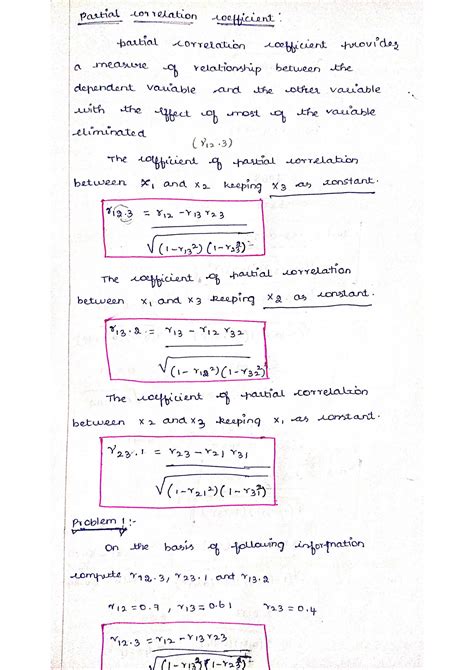 Partial correlation coefficient:
partial correlation coefficient provides
a measure of relationship between the
dependent variable and the other variable
with the effect of most of the variable
eliminated
(r12.3)
The coefficient of partial correlation
between x1 and x2 keeping x3 as constant.
r12.3 = r12 - r13 r23
√(1-r13²)(1-r23²)
The coefficient of partial correlation
between x1 and x3 keeping x2 as constant.
r13.2 = r13 - r12 r32
√(1-r12²)(1-r32²)
The coefficient of partial correlation
between x2 and x3 keeping x1 as constant.
r23.1 = r23 - r21 r31
√(1-r21²)(1-r31²)
Problem 1:-
On the basis of following information
compute r12.3, r23.1 and r13.2
r12 = 0.7, r13 = 0.61 r23 = 0.4
r12.3 = r12 - r13 r23
√(1-r13²)(1-r23²)